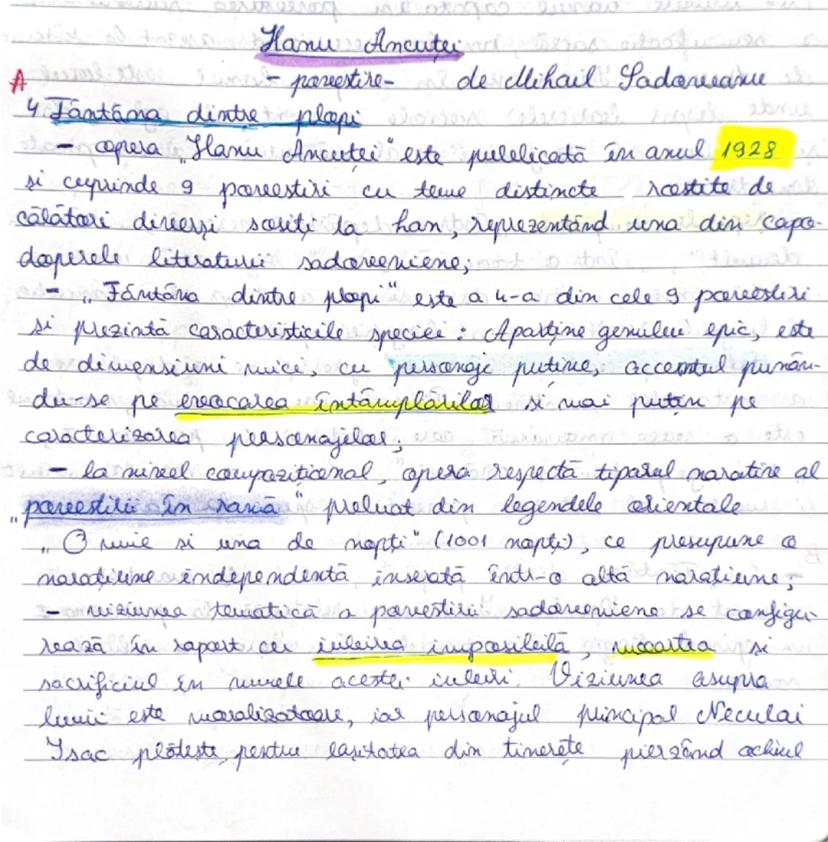 Hanu Ancuței
- povestire- de Mihail Sadoveanu
A
4. Fântâna dintre plopi
- opera „Hanu Ancuței" este publicată în anul 1928
si cuprinde 9 povestiri cu teme distincte rostite de
călători diverși sosiți la han, reprezentând una din capo-
doperele literaturii sadoveniene;
- „Fântâna dintre plopi" este a 4-a din cele 9 povestiri
si prezintă caracteristicile speciei: Aparține genului epic, este
de dimensiuni mici, cu personaje puține, accentul punân-
du-se pe evocarea întâmplărilor si mai puțin pe
caracterizarea personajelor;
- la nivel compozițional, opera respectă tiparul narativ al
„povestirii în ramă" preluat din legendele orientale
„O mie si una de nopți" (1001 nopți), ce presupune o
narațiune independentă inserată într-o altă narațiune;
- viziunea tematică a povestirii sadoveniene se configu-
rează în raport cu iubirea imposibilă, moartea si
sacrificiul în numele acestei iubiri. Viziunea asupra
lumii este moralizatoare, iar personajul principal Neculai
Isac plătește, pentru lașitatea din tinerețe pierzând ochiul